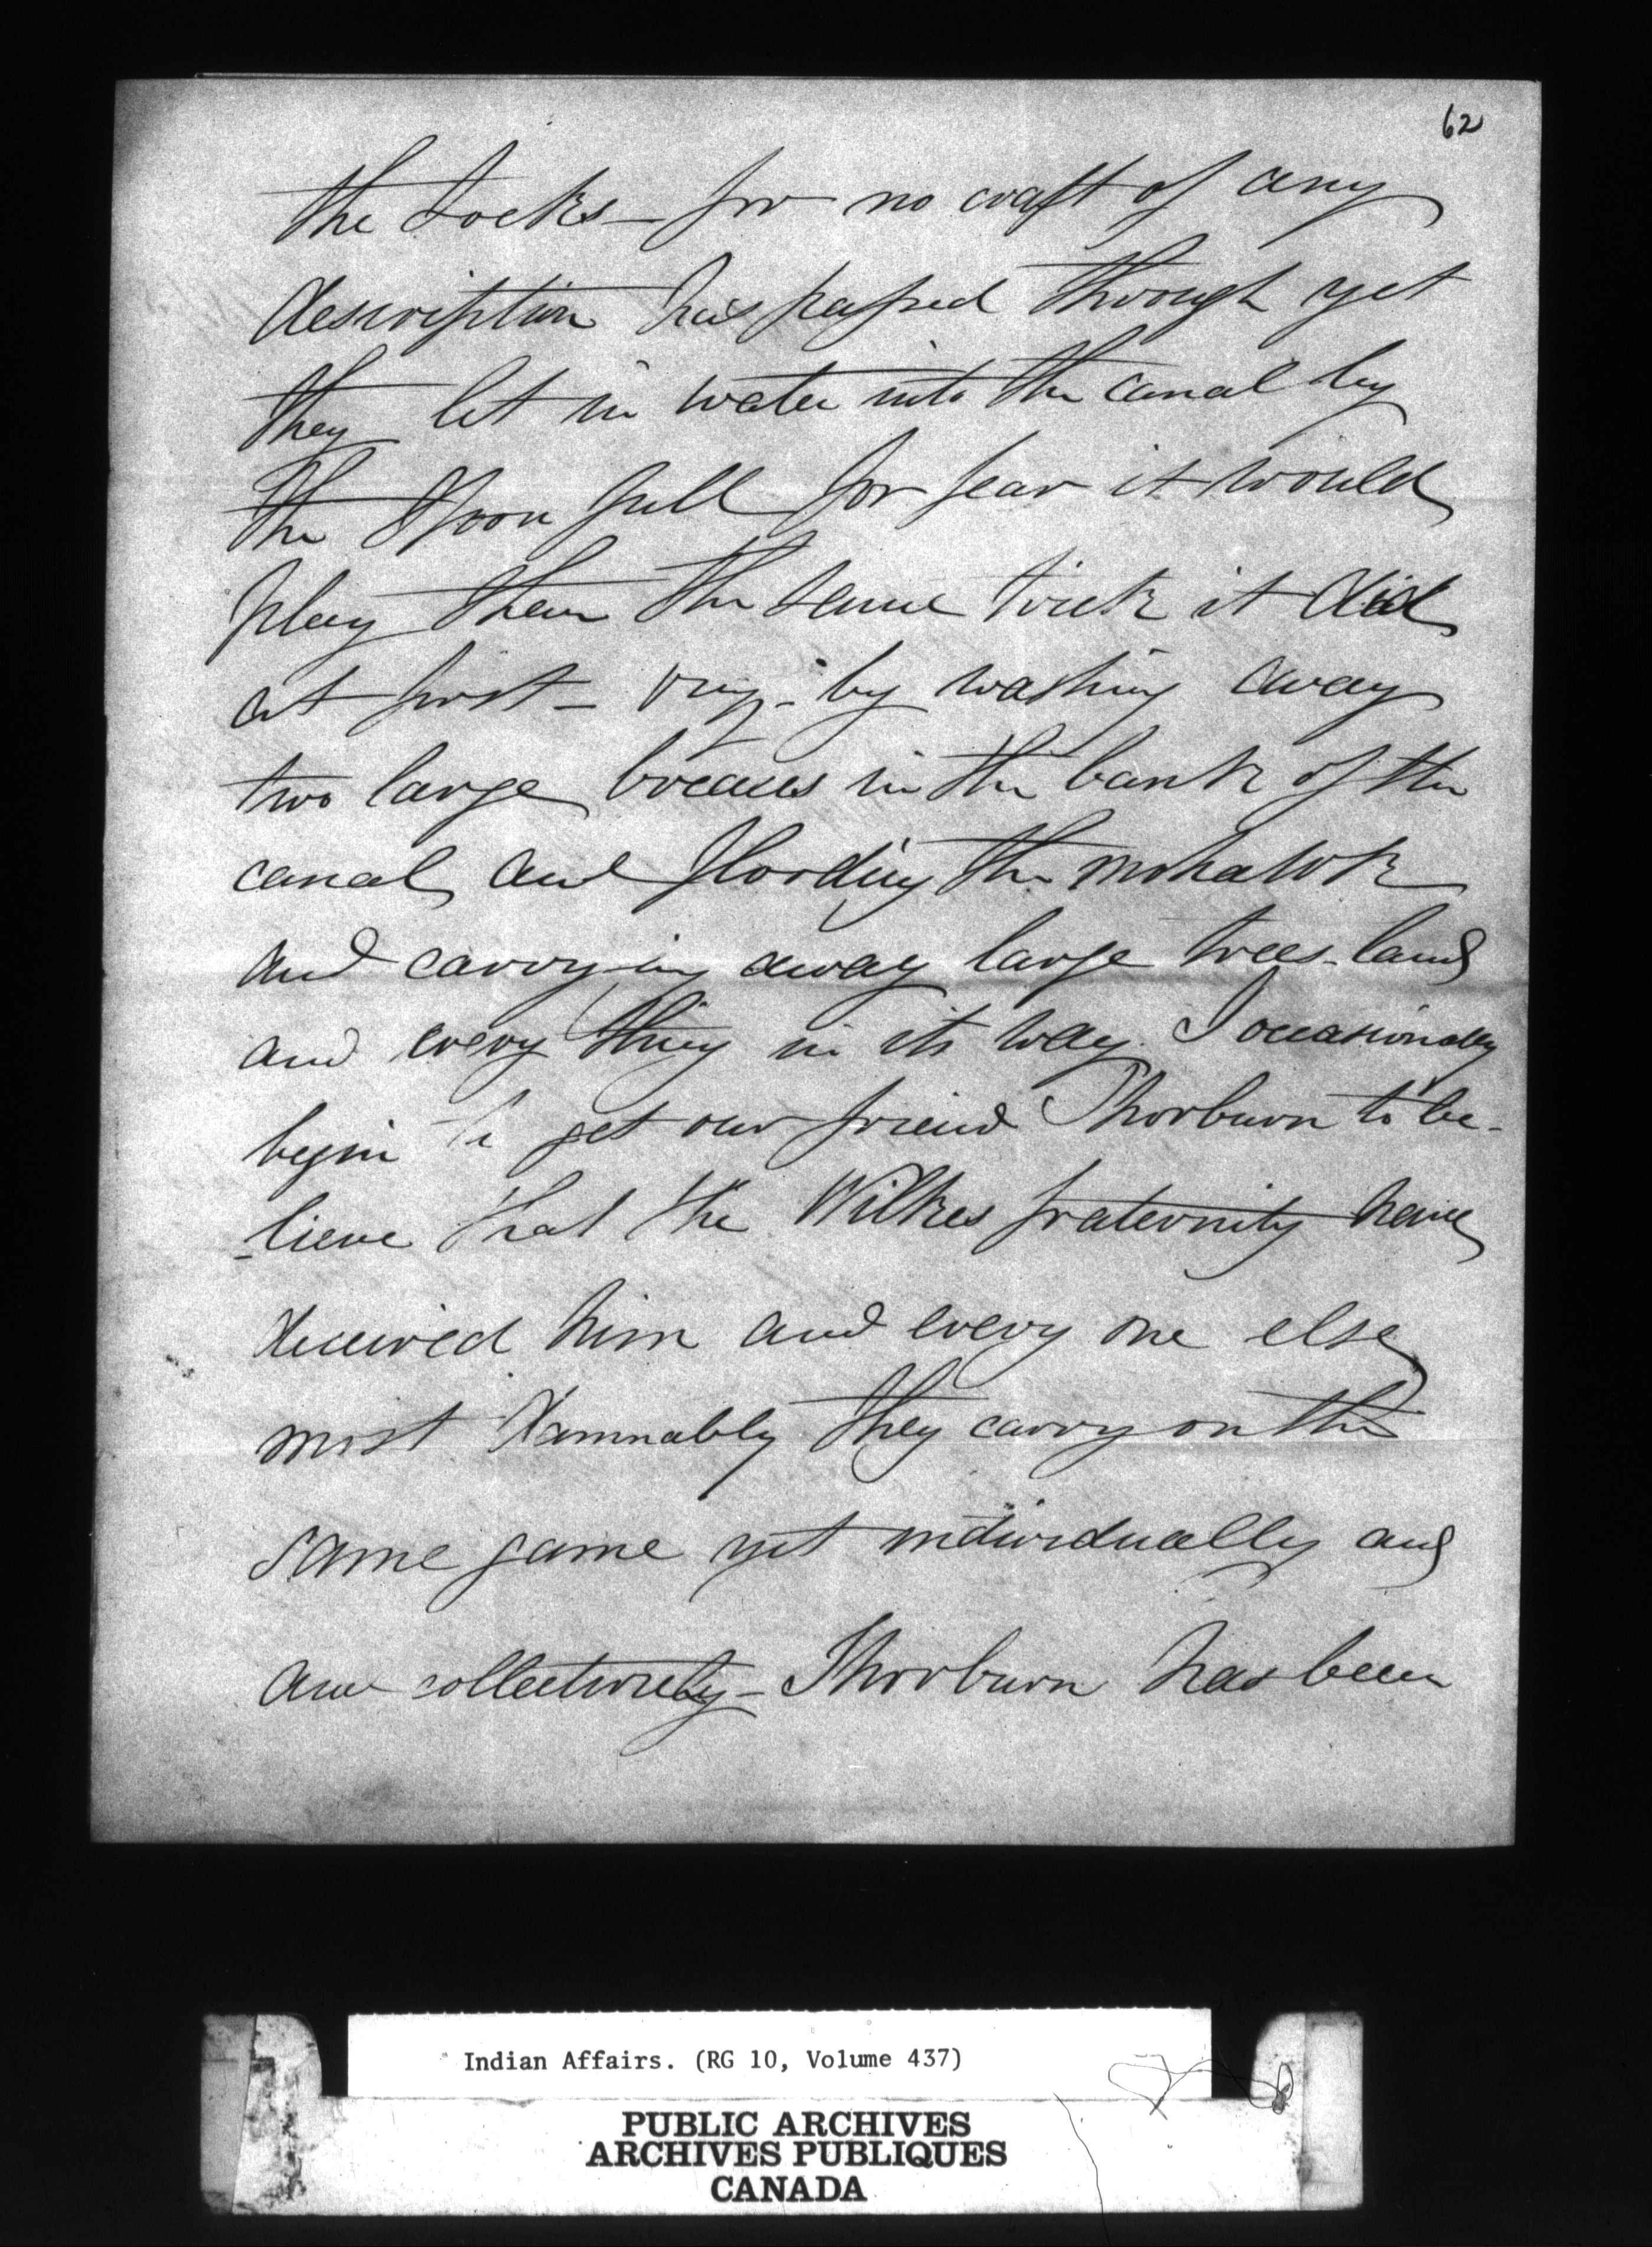 62
the Locks - for no craft of any
description has passed through yet
they let in water into the canal by
the Spoon full for fear it would
play them the same trick it did
at first - viz - by washing away
two large breaces in the bank of the
canal and flooding the mohawk
and carrying away large trees - land
and every thing in its way. I occasionally
begin to get our friend Thorburn to be-
-lieve that the Wilkes fraternity have
deceived him and every one else
most damnably they carry on the
same game yet individually and
and collectively - Thorburn has been
Indian Affairs. (RG 10, Volume 437)
PUBLIC ARCHIVES
ARCHIVES PUBLIQUES
CANADA